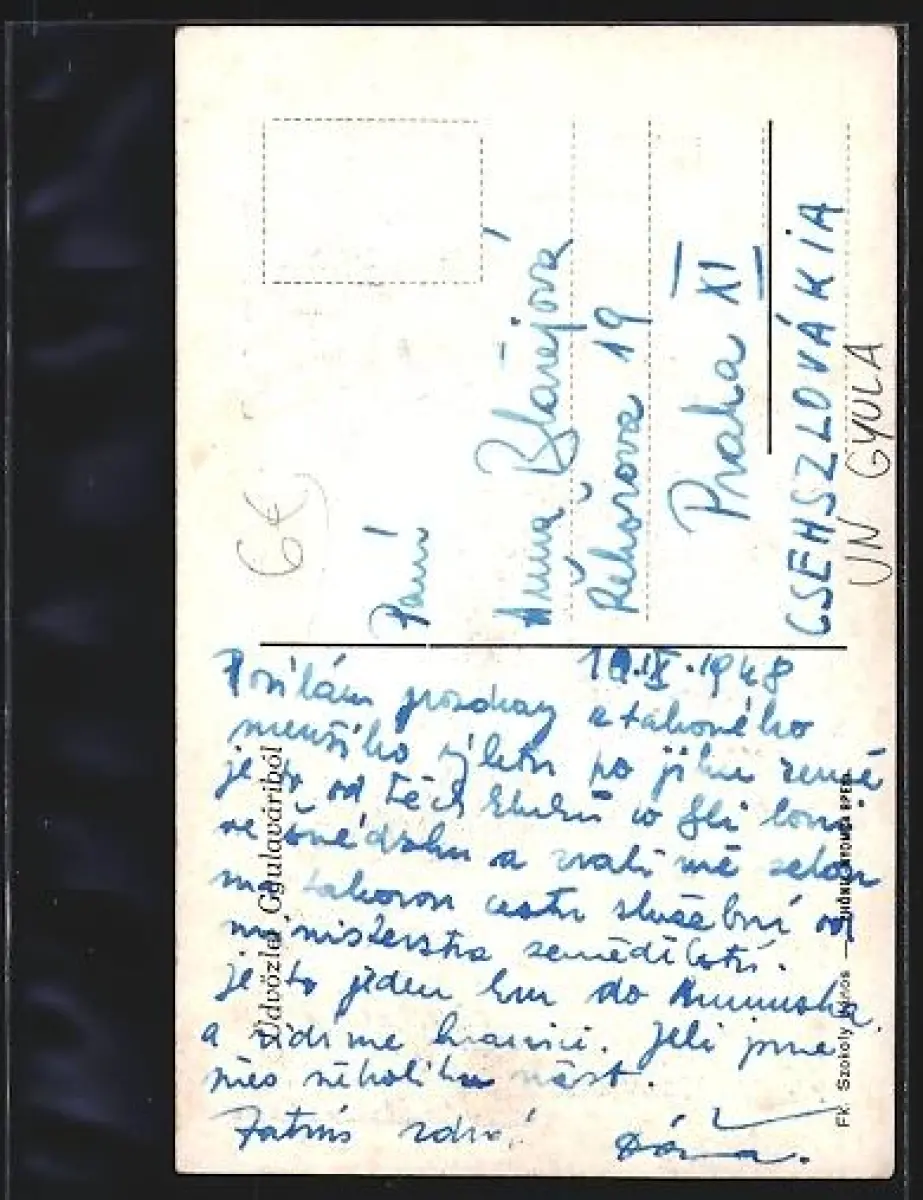 6€
Paní
Anna Blažejová
Řehořova 19
Praha XI
CSEHSZLOVÁKIA
UN GYULA
10.IX.1948
Posílám pozdravy z takového
menšího výletu po jihu země
je to od těch kluků co byli loni
ve švédsku a zvali mě sebou
na takovou cestu služební od
ministerstva zemědělství.
je to jeden km do Rumunska
a vidíme hranici. Jeli jsme
přes několik měst.
Zatím zdraví
Üdvözlet Gyulaváriból
Fk. Szokoly János